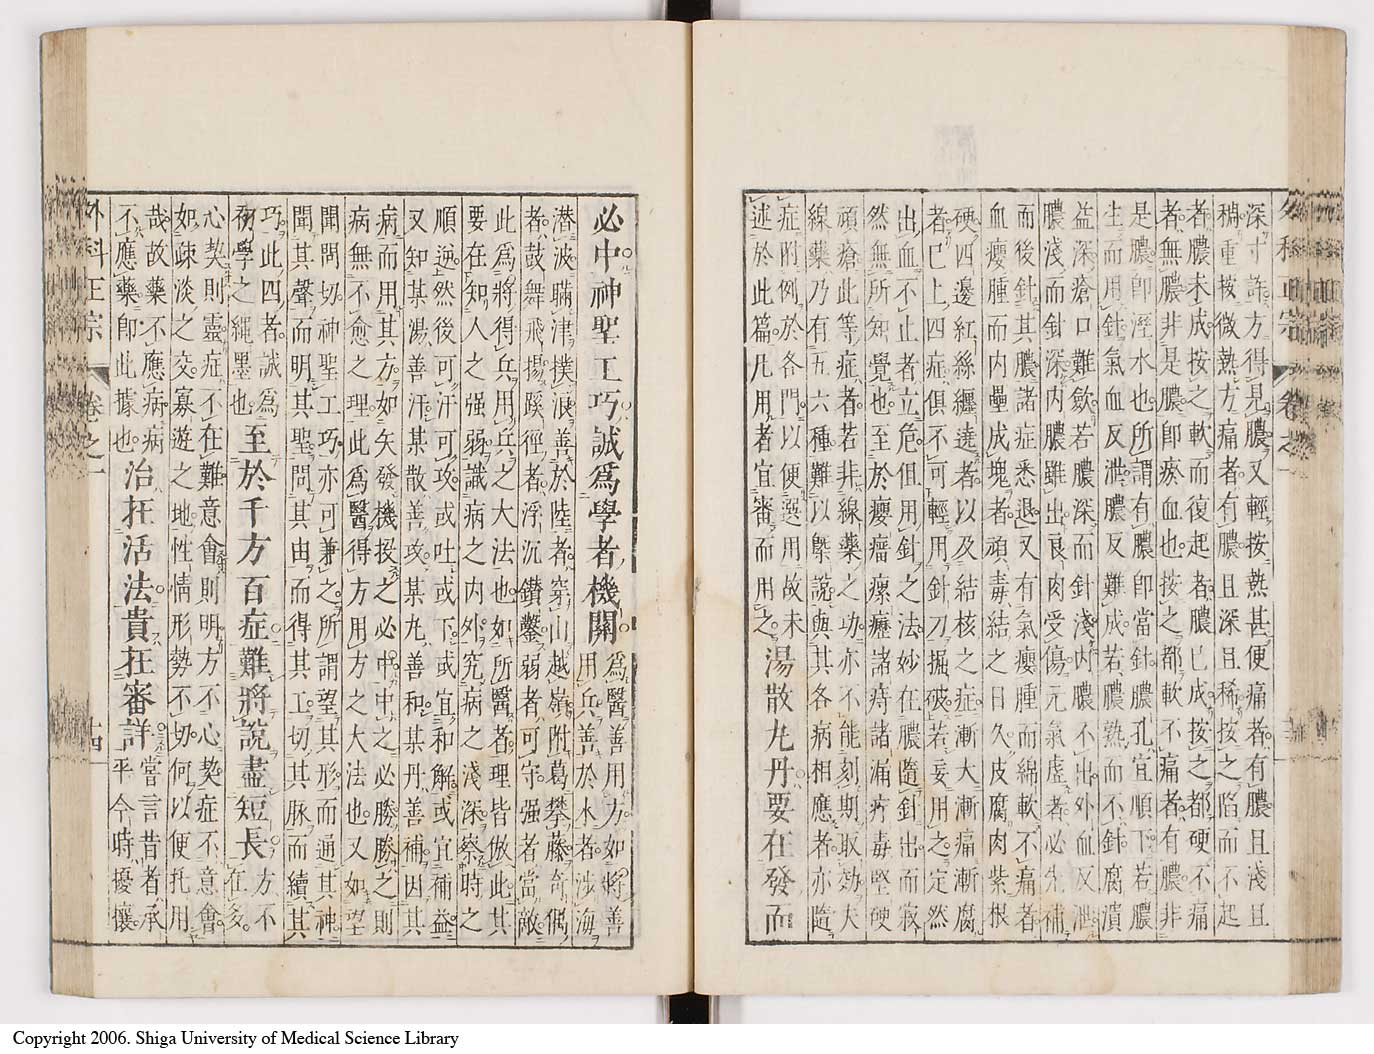 外科正宗　卷之一
深寸許方得見膿又輕按熱甚便痛者有膿且淺且
稠重按微熱方痛者有膿且深且稀按之陷而不起
者膿未成按之軟而復起者膿已成按之都硬不痛
者無膿非是膿即瘀血也按之都軟不痛者有膿非
是膿即溼水也所謂有膿即當針膿孔宜順下若膿
生而用針氣血反泄膿反難成若膿熟而不針腐潰
益深瘡口難斂若膿深而針淺内膿不出外血反泄
膿淺而針深内膿雖出良肉受傷元氣虛者必先補
而後針其膿諸症悉退又有氣癭腫而綿軟不痛者
血癭腫而内壘成塊者頑毒結之日久皮腐肉紫根
硬四邊紅絲纏遶者以及結核之症漸大漸痛漸腐
者已上四症俱不可輕用針刀掘破若妄用之定然
出血不止者立危但用針之法妙在膿隨針出而寂
然無所知覺也至於癭瘤瘰癧諸痔諸漏疔毒堅硬
頑瘡此等症者若非線藥之功亦不能刻期取効大
線藥乃有五六種難以槩說與其各病相應者亦隨
症附例於各門以便選用故未
述於此篇凡用者宜審而用之
湯散丸丹要在發而
必中神聖工巧誠爲學者機關
爲醫善用方如將善
用兵善於水者涉海
潜波瞞津撲淚善於陸者穿山越嶺附葛攀藤奇偶
者鼓舞飛揚蹊徑者浮沉鑚鑿弱者可守强者當敵
此爲將得兵用兵之大法也如所醫者理皆倣此其
要在知人之强弱識病之内外究病之淺深察時之
順逆然後可汗可攻或吐或下或宜和解或宜補益
又知某湯善汗某散善攻某丸善和某丹善補因其
病而用其方如矢發機投之必中中之必勝勝之則
病無不愈之理此爲醫得方用方之大法也又如望
聞問切神聖工巧亦可兼之所謂望其形而通其神
聞其聲而明其聖問其由而得其工切其脉而續其
巧此四者誠爲
初學之繩墨也
至於千方百症難將說盡短長
方不在多
心契則靈症不在難意會則明方不心契症不意會
如疎淡之交寡遊之地性情形勢不切何以便托用
哉故藥不應病病
不應藥即此據也
治在活法貴在審詳
嘗言昔者承
平今時擾攘
外科正宗　卷之一　十四
Copyright 2006. Shiga University of Medical Science Library